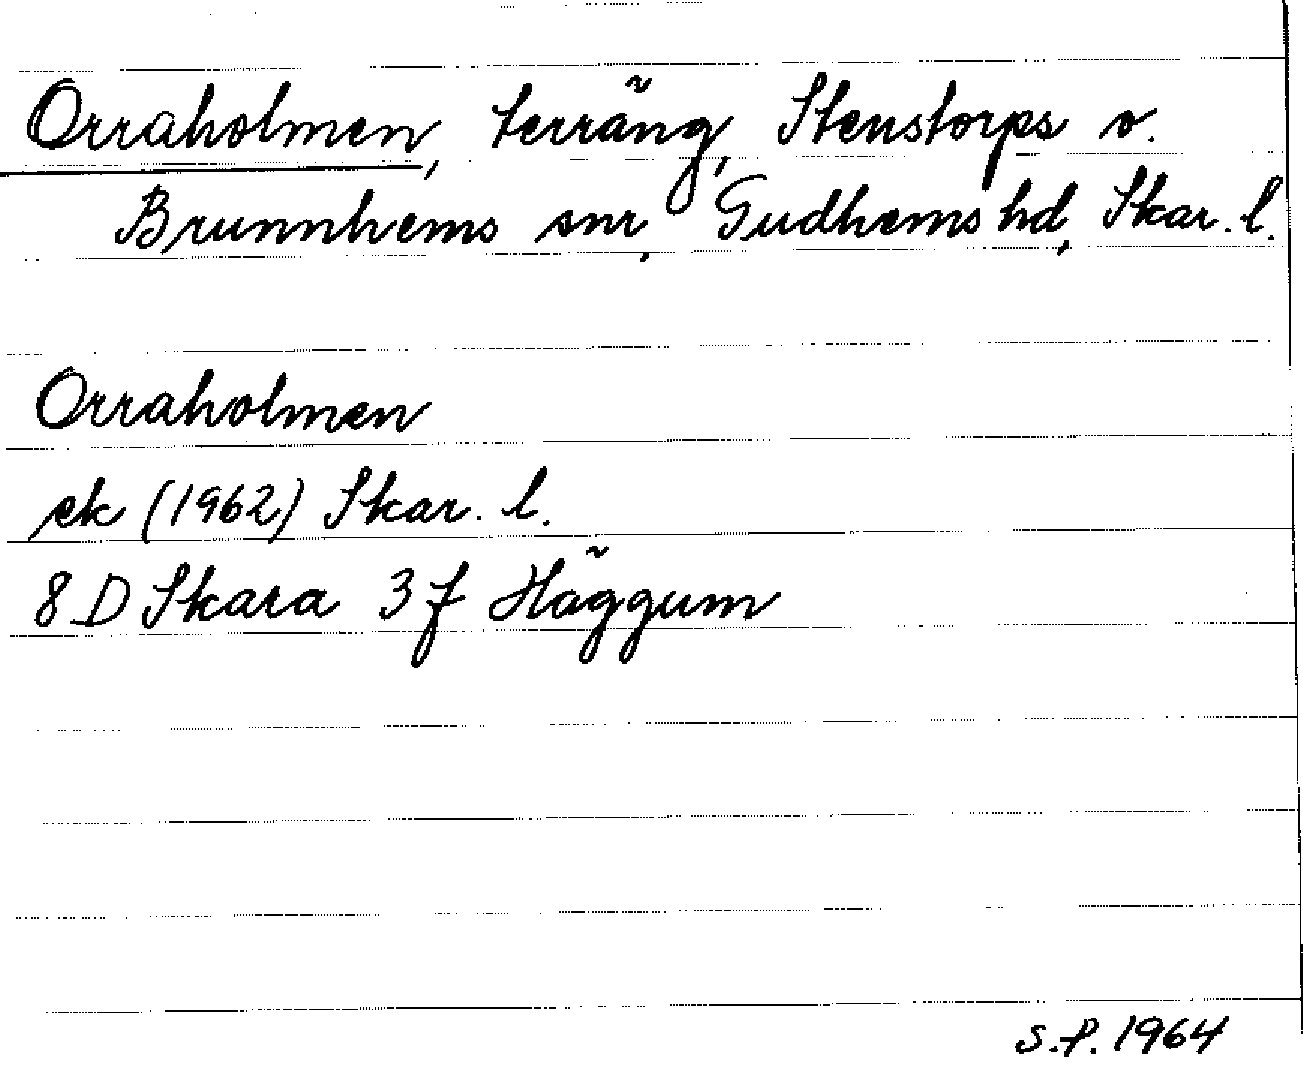 Orraholmen, terräng, Stenstorps o.
Brunnhems snr, Gudhems hd, Skar. l.
Orraholmen
ek (1962) Skar. l.
8 D Skara 3 f Häggum
S.F. 1964